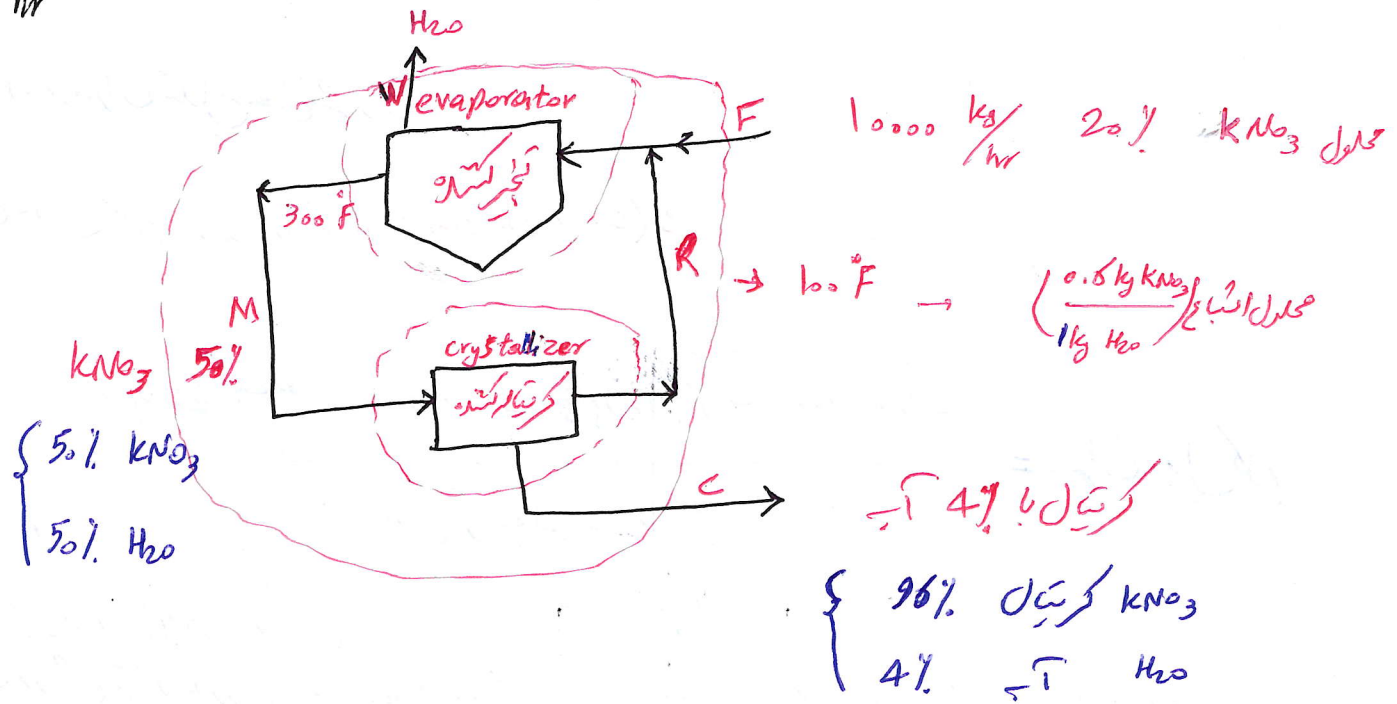 hr
H₂O
W evaporator
تبخیر کننده
F
10000 kg/hr 20% KNO₃ محلول
300 °F
M
R → 100 °F → (0.6 kg KNO₃ / 1 kg H₂O) محلول اشباع
KNO₃ 50%
crystallizer
کریستالر کننده
{ 50% KNO₃
50% H₂O
C
کریستال با 4% آب
{ 96% کریستال KNO₃
4% آب H₂O